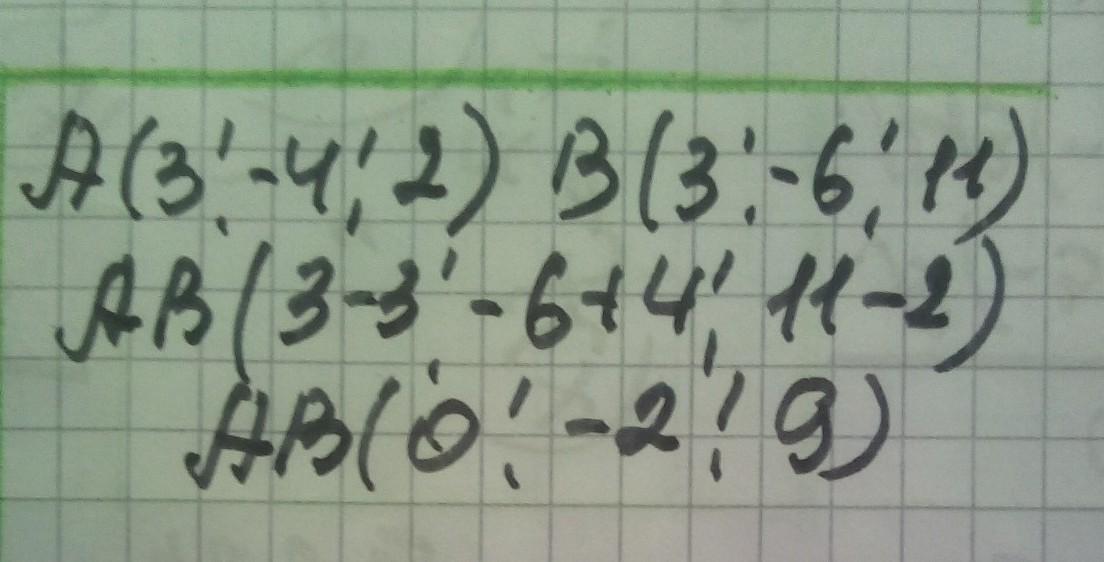 A(3; -4; 2) B(3; -6; 11)
AB(3-3; -6+4; 11-2)
AB(0; -2; 9)